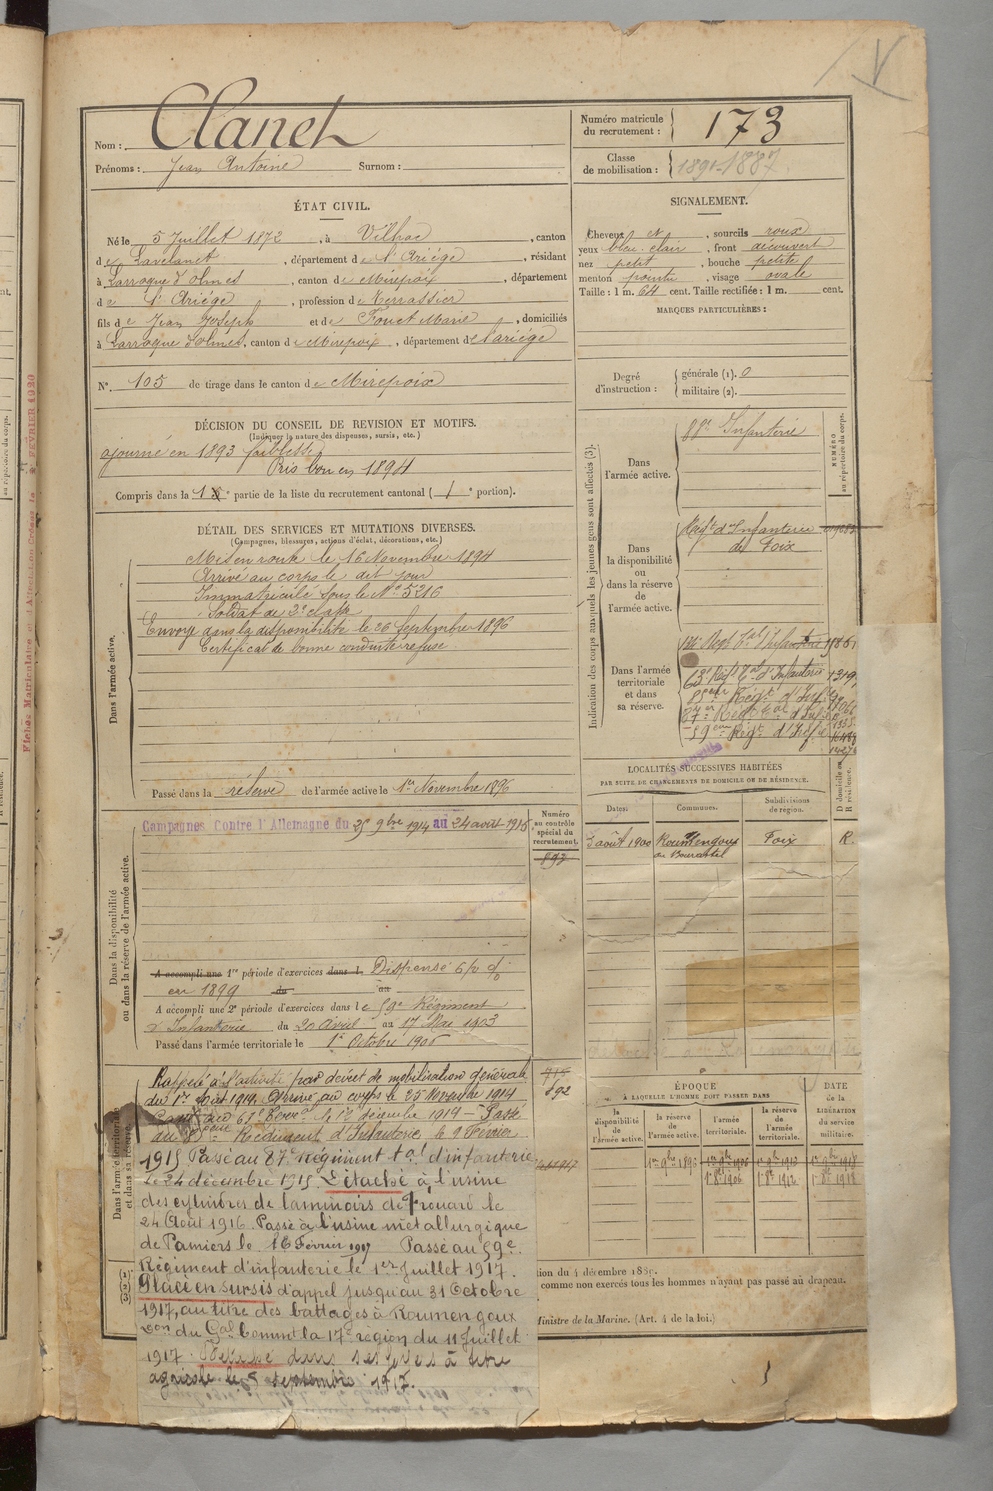 Nom : Clanet
Prénoms : Jean Antoine Surnom :
Numéro matricule du recrutement : 173
Classe de mobilisation : 1891-1887
ÉTAT CIVIL.
Né le 5 Juillet 1872, à Vilhac, canton
de Lavelanet, département de l'Ariége, résidant
à Larroque d'olmes, canton de Mirepoix, département
de l'Ariége, profession de Terrassier
fils de Jean Joseph et de Fouet Marie, domiciliés
à Larroque d'olmes, canton de Mirepoix, département de l'ariége
N° 105 de tirage dans le canton de Mirepoix
SIGNALEMENT.
Cheveux et, sourcils roux
yeux bleu-clair, front découvert
nez petit, bouche petite
menton pointu, visage ovale
Taille : 1 m. 64 cent. Taille rectifiée : 1 m. cent.
MARQUES PARTICULIÈRES :
Degré d'instruction : générale (1). 0
militaire (2).
DÉCISION DU CONSEIL DE REVISION ET MOTIFS.
(Indiquer la nature des dispenses, sursis, etc.)
ajourné en 1893 faiblesse
Pris bon en 1894
Compris dans la 1e partie de la liste du recrutement cantonal (1e portion).
DÉTAIL DES SERVICES ET MUTATIONS DIVERSES.
(Campagnes, blessures, actions d'éclat, décorations, etc.)
Dans l'armée active.
Mis en route le 16 Novembre 1894
Arrivé au corps le dit jour
Immatriculé sous le No 5216
Soldat de 2e classe
Envoyé dans la disponibilité le 26 Septembre 1896
Certificat de bonne conduite refusé
Passé dans la réserve de l'armée active le 1er Novembre 1896
Indication des corps auxquels les jeunes gens sont affectés (3).
NUMÉRO au répertoire du corps.
Dans l'armée active.
88e Infanterie
Dans la disponibilité ou dans la réserve de l'armée active.
Régt d'Infanterie
de Foix
Dans l'armée territoriale et dans sa réserve.
63e Régt Tal d'Infanterie
Régt d'Inf
87e Régt Tal d'Inf
59ème Régt d'Infie
LOCALITÉS SUCCESSIVES HABITÉES
PAR SUITE DE CHANGEMENTS DE DOMICILE OU DE RÉSIDENCE.
Dates. Communes. Subdivisions de région. D domicile ou R résidence.
août 1900 Roumengoux Foix R.
Dans la disponibilité ou dans la réserve de l'armée active.
Numéro au contrôle spécial du recrutement.
Campagnes Contre l'Allemagne du 25 9bre 1914 au 24 avril 1915
A accompli une 1re période d'exercices dans l. Dispensé
en 1899 du au
A accompli une 2e période d'exercices dans le 59e Régiment
d'Infanterie du 20 Avril au 17 Mai 1903
Passé dans l'armée territoriale le 1er Octobre 1906
Dans l'armée territoriale et dans sa réserve.
692
Rappelé à l'activité par décret de mobilisation générale
du 1er Août 1914. Arrivé au corps le 25 Novembre 1914
décembre 1914 - Passé
au Régiment d'Infanterie le 9 Février
1915 Passé au 87e Régiment tal d'infanterie
le 24 décembre 1915. Détaché à l'usine
des cylindres de laminoirs de Frouard le
24 Août 1916. Passé à l'usine métallurgique
de Pamiers le 16 Février 1917 Passé au 59e
Régiment d'infanterie le 1er Juillet 1917.
Placé en sursis d'appel jusqu'au 31 Octobre
1917, au titre des battages à Roumengoux
Don du Gal Commt la 17e région du 11 Juillet
1917. Détaché dans ses foyers à titre
agricole le 5 septembre 1917.
ÉPOQUE
À LAQUELLE L'HOMME DOIT PASSER DANS
la disponibilité de l'armée active. la réserve de l'armée active. l'armée territoriale. la réserve de l'armée territoriale.
DATE de la LIBÉRATION du service militaire.
1er 9bre 1895 1er 9bre 1906 1er 9bre 1912 1er 9bre 1918
1er 8bre 1906 1er 8bre 1912 1er 8bre 1918
tion du 4 décembre 1889.
comme non exercés tous les hommes n'ayant pas passé au drapeau.
Ministre de la Marine. (Art. 4 de la loi.)